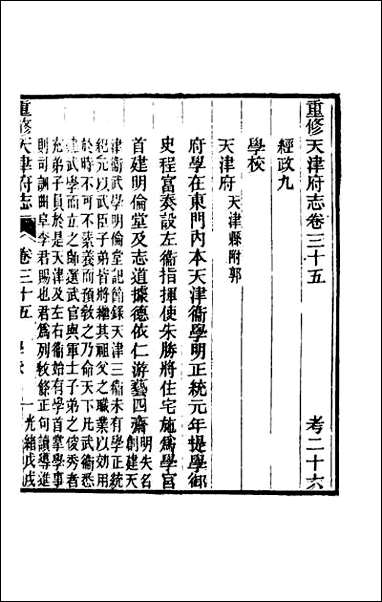 重修天津府志卷三十五 考二十六
經政九
學校
天津府 天津縣附郭
府學在東門內本天津衞學明正統元年提學御
史程富奏設左衞指揮使朱勝將住宅施爲學宮
首建明倫堂及志道據德依仁游藝四齋 明失名創建天
津衞武學明倫堂記節錄天津三衞未有學正統
紀元以武臣子弟皆將繼其祖父之職業以効用
於時不可不素養而預敎之乃命天下凡武衞悉
建武學而立之師選武官與軍士子弟之俊秀者
充弟子員於是天津及左右衞始有學首掌學事
則司訓曲阜李君賜也君爲列敎條正句讀導進
重修天津府志 卷三十五 一 光緖戊戌